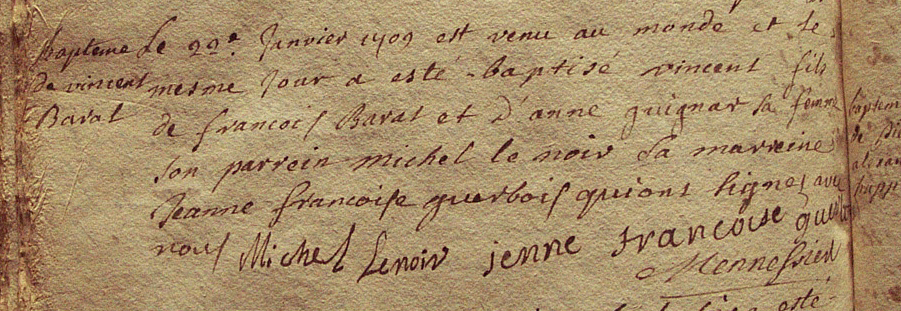 bapteme
de vincent
Barat
Le 22e Janvier 1709 est venu au monde et le
mesme Jour a esté baptisé vincent fils
de francois Barat et D'anne guignar sa femme
son parrein michel le noir sa marreine
Jeanne francoise guerbois qui ont signez avec
nous Michel Lenoir jenne francoise
esté
baptem